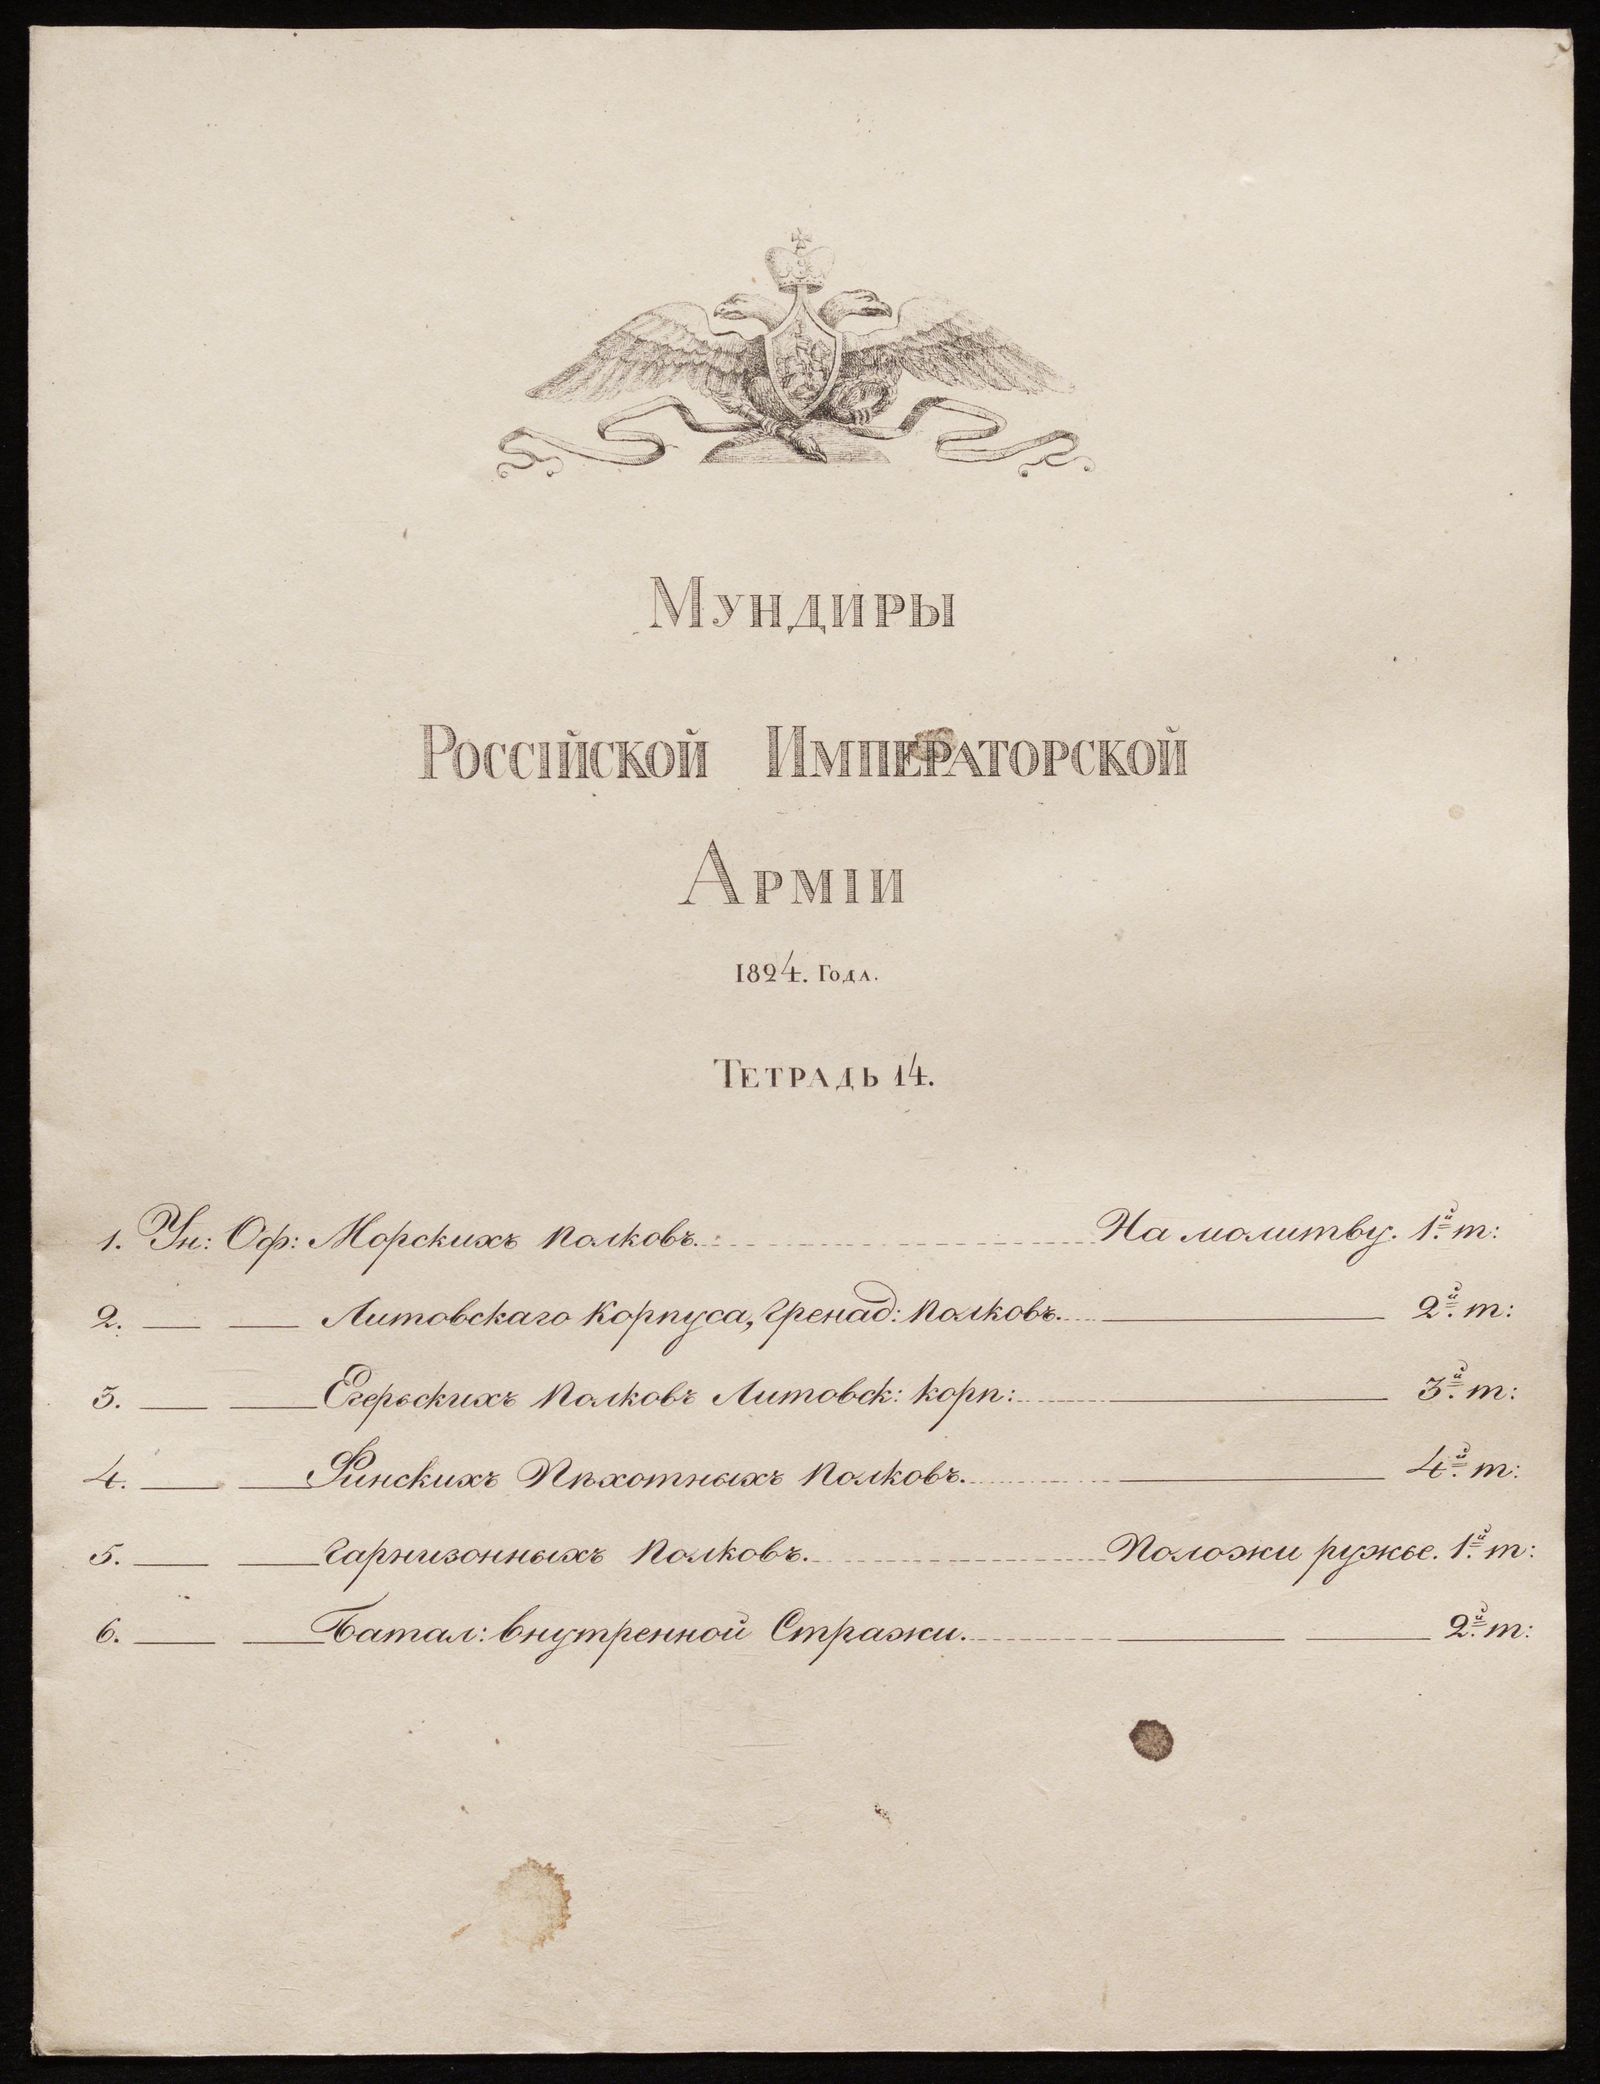 Мундиры
Россійской Императорской
Арміи
1824. Года.
Тетрадь 14.
1. Ун: Оф: Морскихъ полковъ. На молитву. 1.й т:
2. — — Литовскаго корпуса, гренад: полковъ. — 2.й т:
3. — — Егерьскихъ полковъ Литовск: корп: — 3.й т:
4. — — Финскихъ Пѣхотныхъ полковъ. — 4.й т:
5. — — гарнизонныхъ полковъ. Положи ружье. 1.й т:
6. — — Батал: внутренной Стражи. — — 2.й т: